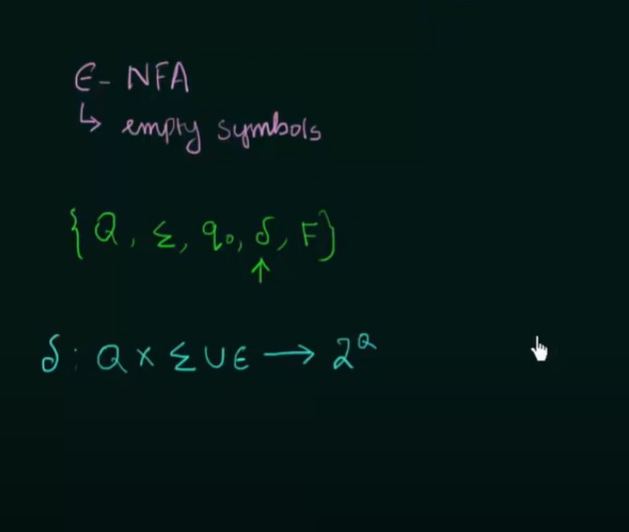 ϵ- NFA
↳ empty symbols
{ Q, Σ, q₀, δ, F}
↑
δ: Q x Σ U ϵ → 2^Q